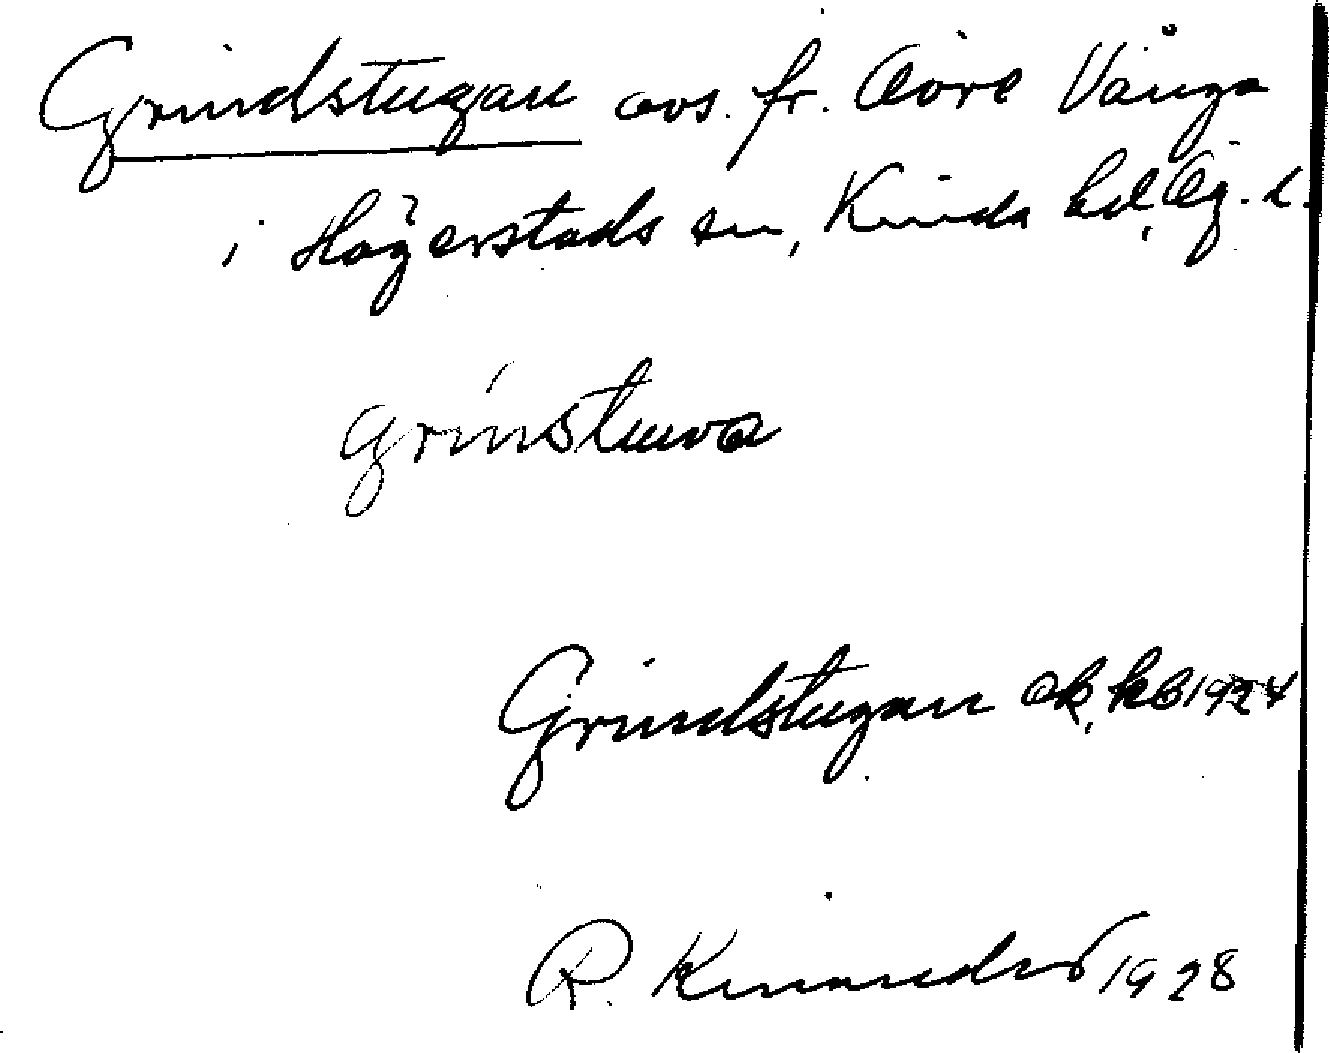 Grindstugan avs. fr. Övre Vånga
i Hägerstads sn, Kinda hd, Ög. l.
grinstuva
Grindstugan ek, kb 1924
R. Kinander 1928